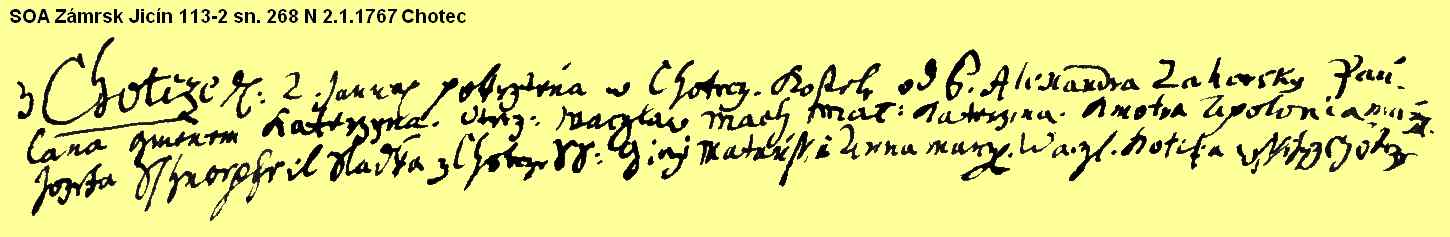 SOA Zámrsk Jicín 113-2 sn. 268 N 2.1.1767 Chotec
z Chotcze d. 2. January pokrztěna w Chotczy. Kostele od P. Alexandra Zahorsky Pan-
Cana gmenem Katerzyna. Otecz. waczlaw mach mat: Katerzina. kmotra Apolonia manz.
Jozefa sladka z Chotcze SS: Girzj i Anna manz. Waczl. Kotika